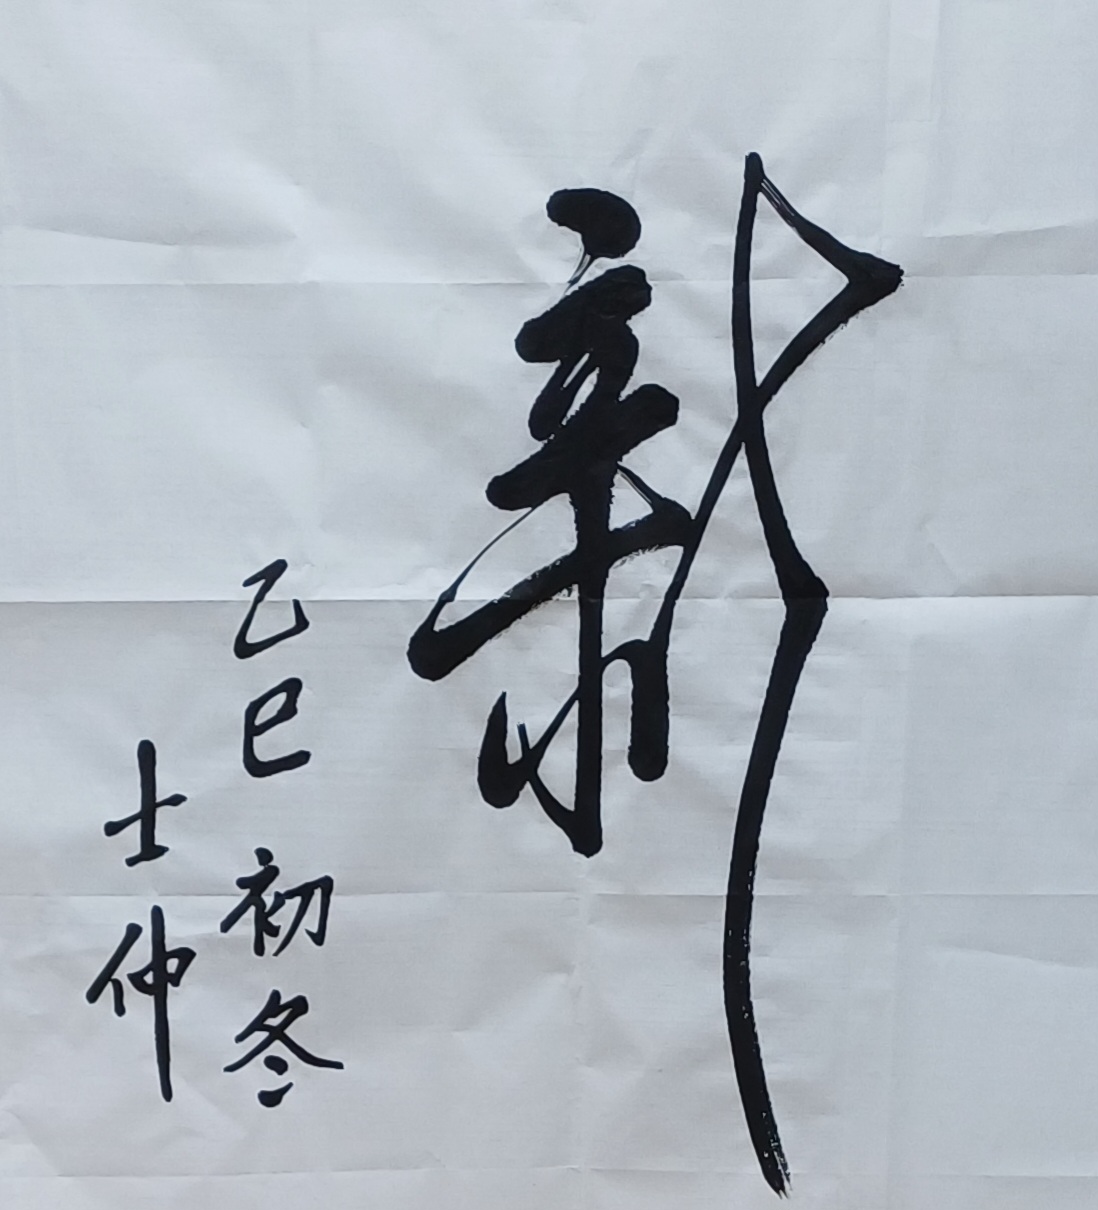 新
乙巳初冬
士仲